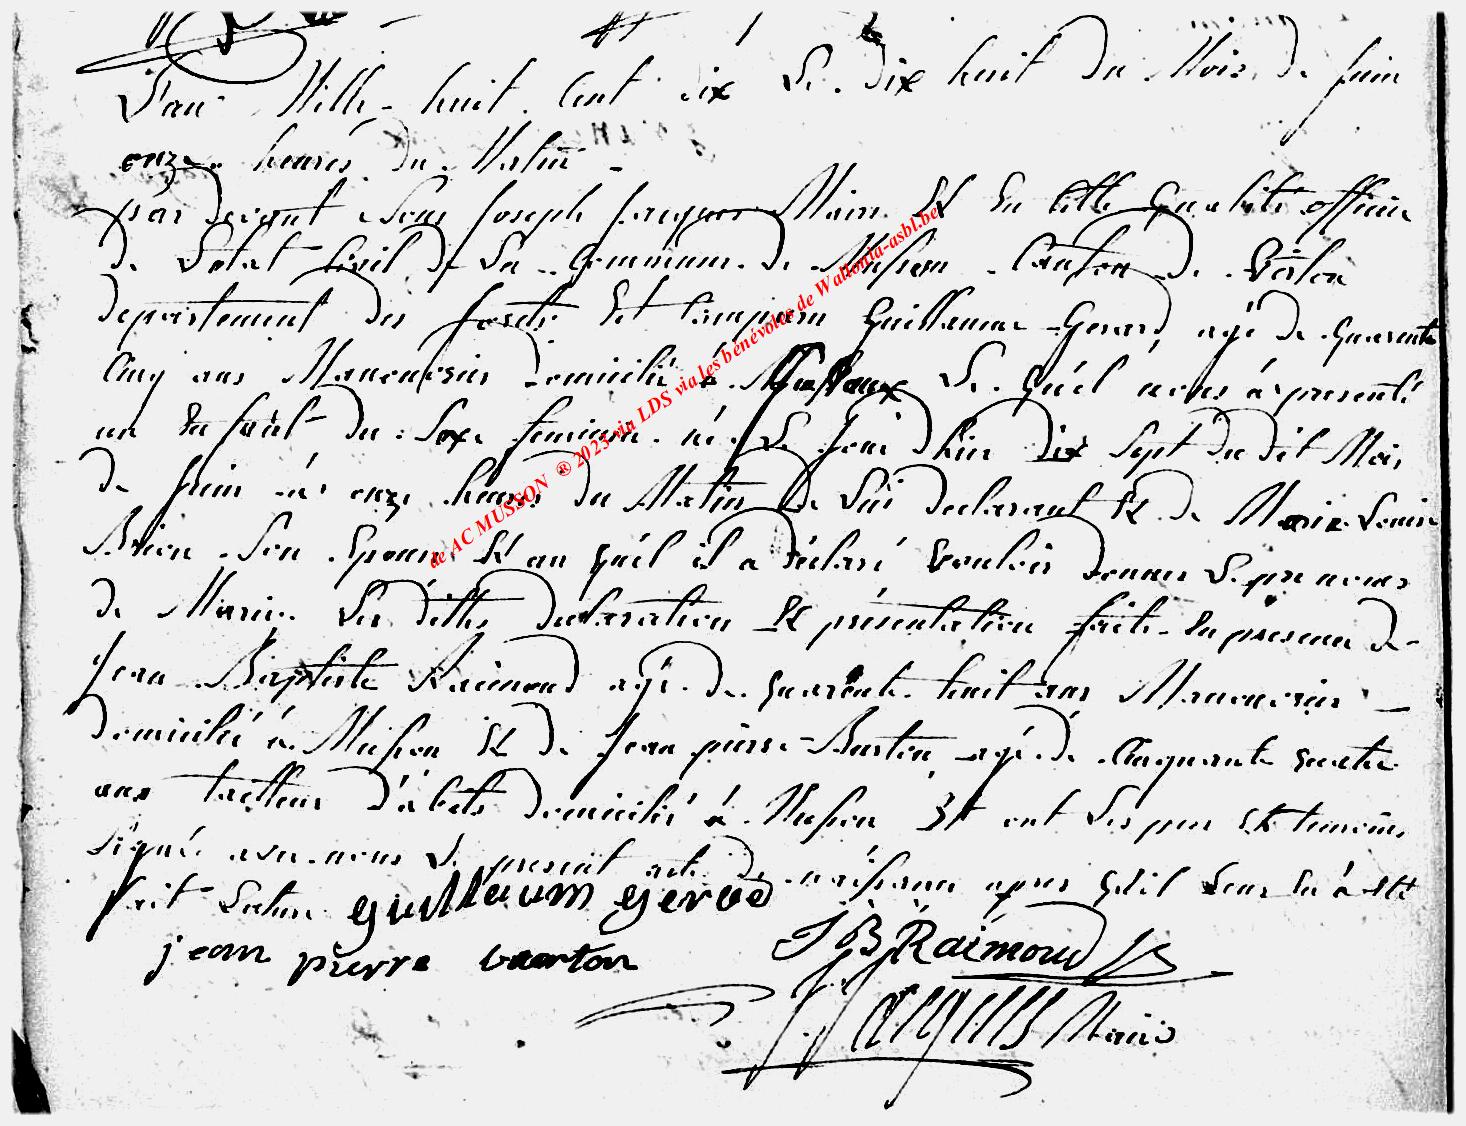 L'an Mille huit Cent dix Le dix huit du Mois de Juin
onze heures du Matin
par devant Nous Joseph Jacques Maire Et En Cette Qualité officier
de L'etat Civil de La Commune de Musson Canton de Virton
departement des forets Est Comparu Guillaume Gerard agé de quarante
Cinq ans Manoeuvrier domicilié à Le quel nous à presenté
un Enfant du Sexe feminin né Le jour d'hier dix Sept du dit Mois
de Juin à onze heures du Matin de Lui declarant Et de Marie Louise
Brion Son Epouse Et au quel il a déclaré Vouloir donner Le prenoms
de Marie. Les dittes declaration Et présentation faite En presence de
Jean Baptiste Raimond agé de quarante huit ans Manoeuvrier
domicilié à Musson Et de Jean pierre Barton agé de Cinquante quatre
ans tailleur d'abits domicilié à Musson Et ont Les pere Et temoins
Signé avec nous Le present acte de naissance apres qu'il Leur En à Eté
fait Lecture guillaum gerard
jean pierre barton J B Raimond
J Jacques Maire
de AC MUSSON ® 2023 via LDS via les bénévoles de Wallonia-asbl.be